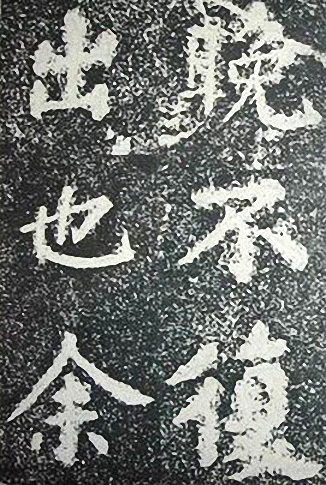 晚不復
出也余